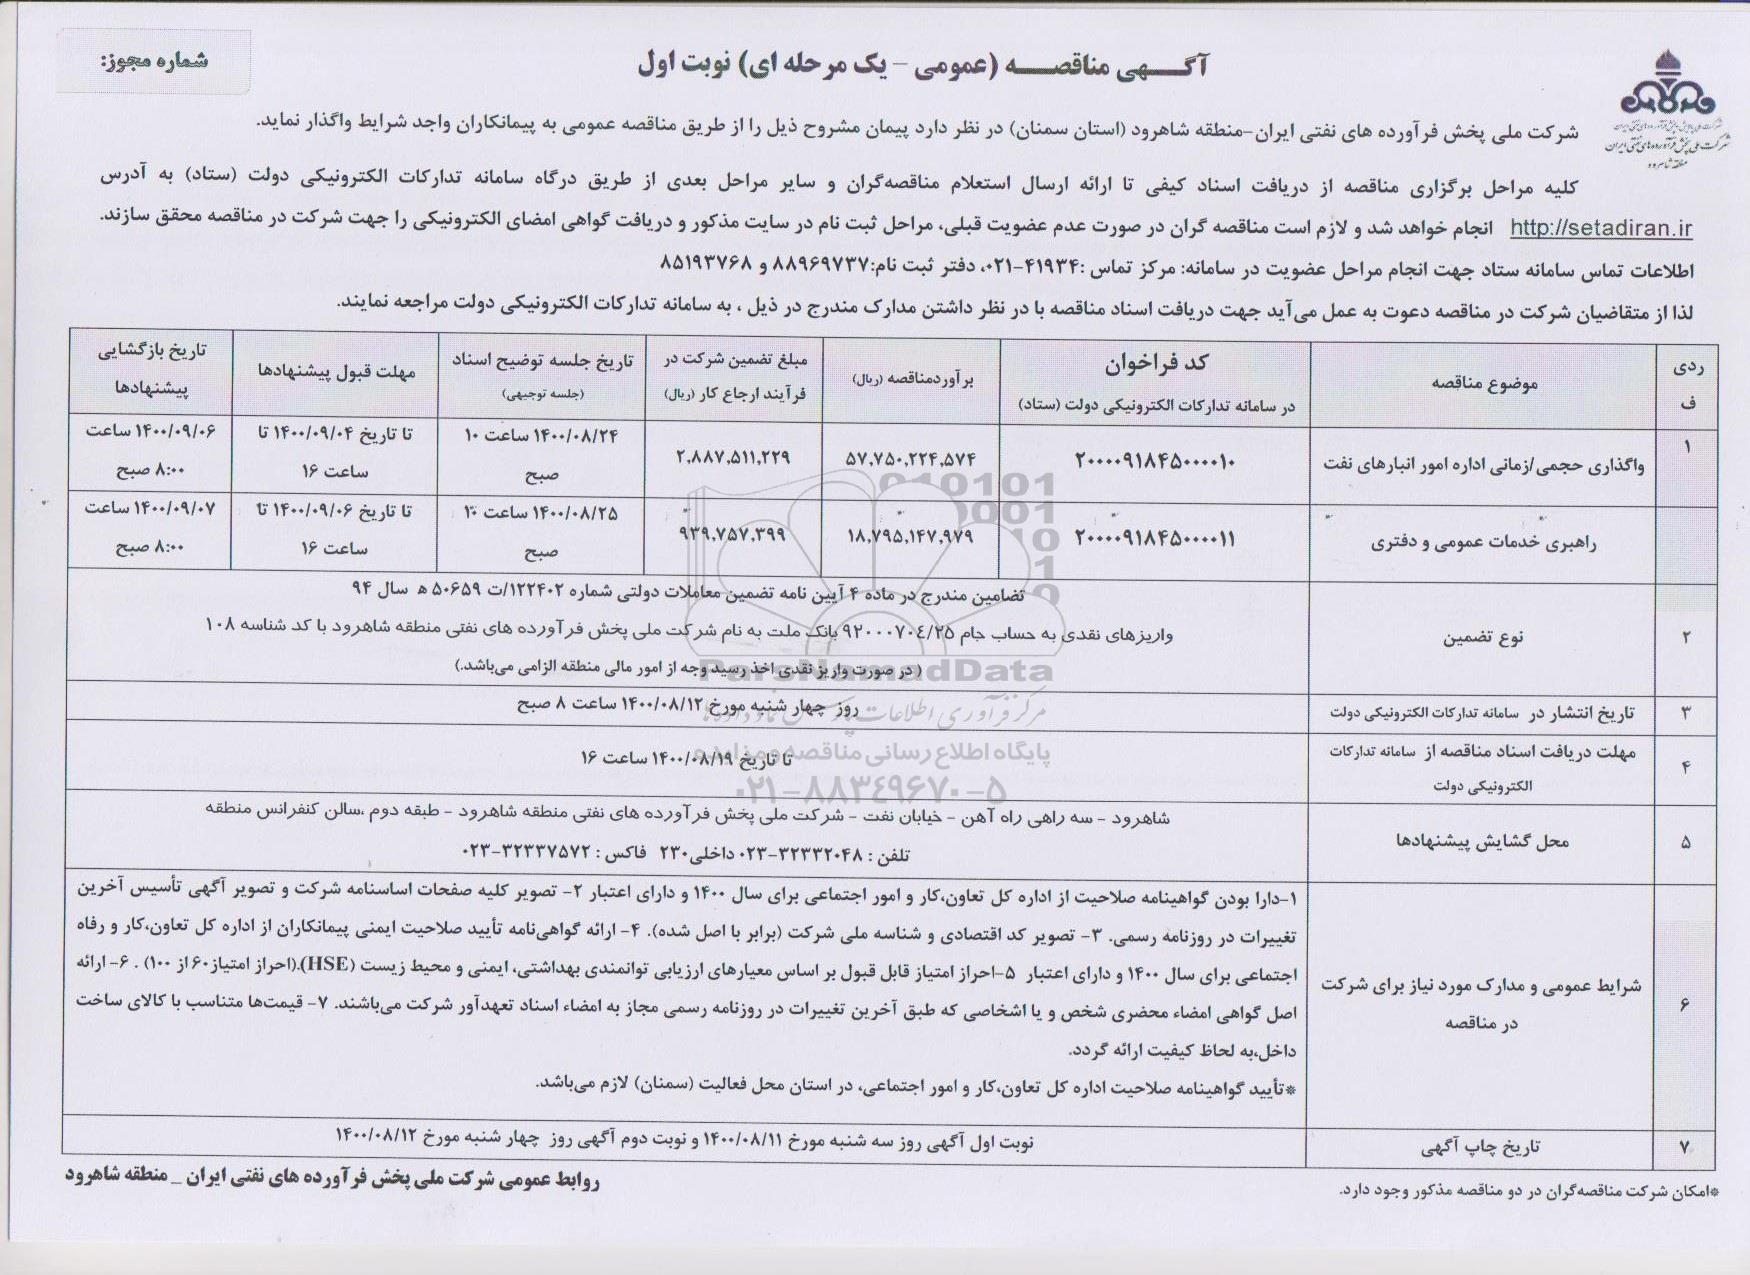 شماره مجوز:
آگهی مناقصه (عمومی - یک مرحله ای) نوبت اول
شرکت ملی پخش فرآورده های نفتی ایران
منطقه شاهرود
شرکت ملی پخش فرآورده های نفتی ایران-منطقه شاهرود (استان سمنان) در نظر دارد پیمان مشروح ذیل را از طریق مناقصه عمومی به پیمانکاران واجد شرایط واگذار نماید.
کلیه مراحل برگزاری مناقصه از دریافت اسناد کیفی تا ارائه ارسال استعلام مناقصه‌گران و سایر مراحل بعدی از طریق درگاه سامانه تدارکات الکترونیکی دولت (ستاد) به آدرس
http://setadiran.ir انجام خواهد شد و لازم است مناقصه گران در صورت عدم عضویت قبلی، مراحل ثبت نام در سایت مذکور و دریافت گواهی امضای الکترونیکی را جهت شرکت در مناقصه محقق سازند.
اطلاعات تماس سامانه ستاد جهت انجام مراحل عضویت در سامانه: مرکز تماس :۴۱۹۳۴-۰۲۱، دفتر ثبت نام:۸۸۹۶۹۷۳۷ و ۸۵۱۹۳۷۶۸
لذا از متقاضیان شرکت در مناقصه دعوت به عمل می‌آید جهت دریافت اسناد مناقصه با در نظر داشتن مدارک مندرج در ذیل ، به سامانه تدارکات الکترونیکی دولت مراجعه نمایند.
ردی
ف
موضوع مناقصه
کد فراخوان
در سامانه تدارکات الکترونیکی دولت (ستاد)
برآوردمناقصه (ریال)
مبلغ تضمین شرکت در
فرآیند ارجاع کار (ریال)
تاریخ جلسه توضیح اسناد
(جلسه توجیهی)
مهلت قبول پیشنهادها
تاریخ بازگشایی
پیشنهادها
۱
واگذاری حجمی/زمانی اداره امور انبارهای نفت
۲۰۰۰۰۹۱۸۴۵۰۰۰۰۱۰
۵۷,۷۵۰,۲۲۴,۵۷۴
۲,۸۸۷,۵۱۱,۲۲۹
۱۴۰۰/۰۸/۲۴ ساعت ۱۰
صبح
تا تاریخ ۱۴۰۰/۰۹/۰۴ تا
ساعت ۱۶
۱۴۰۰/۰۹/۰۶ ساعت
۸:۰۰ صبح
راهبری خدمات عمومی و دفتری
۲۰۰۰۰۹۱۸۴۵۰۰۰۰۱۱
۱۸,۷۹۵,۱۴۷,۹۷۹
۹۳۹,۷۵۷,۳۹۹
۱۴۰۰/۰۸/۲۵ ساعت ۱۰
صبح
تا تاریخ ۱۴۰۰/۰۹/۰۶ تا
ساعت ۱۶
۱۴۰۰/۰۹/۰۷ ساعت
۸:۰۰ صبح
۲
نوع تضمین
تضامین مندرج در ماده ۴ آیین نامه تضمین معاملات دولتی شماره ۱۲۲۴۰۲/ت ۵۰۶۵۹ ه سال ۹۴
واریزهای نقدی به حساب جام ۹۲۰۰۰۷۰۴/۲۵ بانک ملت به نام شرکت ملی پخش فرآورده های نفتی منطقه شاهرود با کد شناسه ۱۰۸
( در صورت واریز نقدی اخذ رسید وجه از امور مالی منطقه الزامی می‌باشد.)
۳
تاریخ انتشار در سامانه تدارکات الکترونیکی دولت
روز چهار شنبه مورخ ۱۴۰۰/۰۸/۱۲ ساعت ۸ صبح
۴
مهلت دریافت اسناد مناقصه از سامانه تدارکات
الکترونیکی دولت
تا تاریخ ۱۴۰۰/۰۸/۱۹ ساعت ۱۶
۵
محل گشایش پیشنهادها
شاهرود - سه راهی راه آهن - خیابان نفت - شرکت ملی پخش فرآورده های نفتی منطقه شاهرود - طبقه دوم ،سالن کنفرانس منطقه
تلفن : ۳۲۳۳۲۰۴۸-۰۲۳ داخلی۲۳۰ فاکس : ۳۲۳۳۷۵۷۲-۰۲۳
۶
شرایط عمومی و مدارک مورد نیاز برای شرکت
در مناقصه
۱-دارا بودن گواهینامه صلاحیت از اداره کل تعاون،کار و امور اجتماعی برای سال ۱۴۰۰ و دارای اعتبار ۲- تصویر کلیه صفحات اساسنامه شرکت و تصویر آگهی تأسیس آخرین
تغییرات در روزنامه رسمی. ۳- تصویر کد اقتصادی و شناسه ملی شرکت (برابر با اصل شده). ۴- ارائه گواهی‌نامه تأیید صلاحیت ایمنی پیمانکاران از اداره کل تعاون،کار و رفاه
اجتماعی برای سال ۱۴۰۰ و دارای اعتبار ۵-احراز امتیاز قابل قبول بر اساس معیارهای ارزیابی توانمندی بهداشتی، ایمنی و محیط زیست (HSE).(احراز امتیاز۶۰ از ۱۰۰) . ۶- ارائه
اصل گواهی امضاء محضری شخص و یا اشخاصی که طبق آخرین تغییرات در روزنامه رسمی مجاز به امضاء اسناد تعهدآور شرکت می‌باشند. ۷- قیمت‌ها متناسب با کالای ساخت
داخل،به لحاظ کیفیت ارائه گردد.
*تأیید گواهینامه صلاحیت اداره کل تعاون،کار و امور اجتماعی، در استان محل فعالیت (سمنان) لازم می‌باشد.
۷
تاریخ چاپ آگهی
نوبت اول آگهی روز سه شنبه مورخ ۱۴۰۰/۰۸/۱۱ و نوبت دوم آگهی روز چهار شنبه مورخ ۱۴۰۰/۰۸/۱۲
*امکان شرکت مناقصه‌گران در دو مناقصه مذکور وجود دارد.
روابط عمومی شرکت ملی پخش فرآورده های نفتی ایران _ منطقه شاهرود
ParsNamadData
پایگاه اطلاع رسانی مناقصه و مزایده
۰۲۱-۸۸۳۴۹۶۷۰-۵